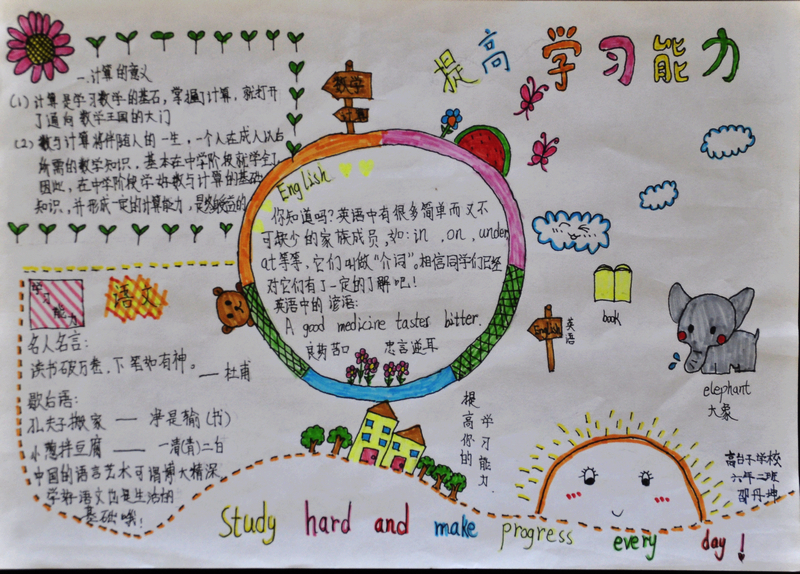 提高学习能力
一.计算的意义
(1) 计算是学习数学的基石，掌握了计算，就打开
了通向数学王国的大门
(2) 数与计算将伴随人的一生，一个人在成人以后
所需的数学知识，基本在中学阶段就学全了
因此，在中学阶段学好数与计算的基础
知识，并形成一定的计算能力，是终生的
数学
计算
English
你知道吗？英语中有很多简单而又不
可缺少的家族成员，如：in , on , under
at等等，它们叫做“介词”。相信同学们已经
对它们有了一定的了解吧！
英语中的谚语：
A good medicine tastes bitter.
良药苦口 忠言逆耳
学习
能力
语文
名人名言：
读书破万卷，下笔如有神。
—— 杜甫
歇后语：
孔夫子搬家 —— 净是输(书)
小葱拌豆腐 —— 一清(青)二白
中国的语言艺术可谓博大精深
学好语文
基础哦！
English
英语
book
elephant
大象
提高你的
学习能力
高台小学校
六年二班
邵丹坤
Study hard and make progress every day !